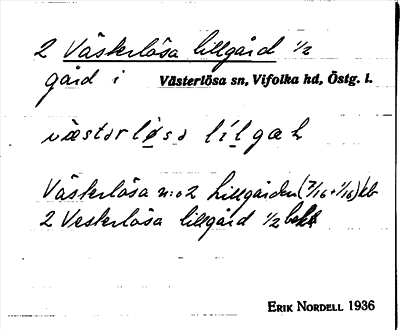 2 Västerlösa lillgård 1/2
gård i Västerlösa sn, Vifolka hd, Östg. l.
væstərlø̣sə lílgaḥ
Västerlösa n:o 2 Lillgården (7/16+1/16) kb
2 Vesterlösa lillgård 1/2
ERIK NORDELL 1936